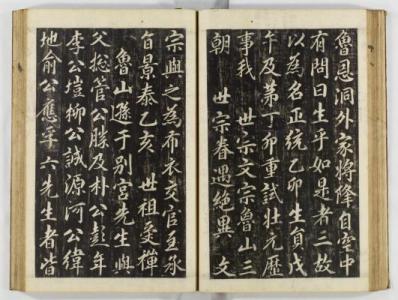 魯恩洞外家將降自空中
有問曰生乎如是者三故
以為名正統乙卯生員戊
午及第丁卯重試壯元歷
事我 世宗文宗魯山三
朝 世宗眷遇絕異 文
宗與之為布衣交官至承
旨景泰乙亥 世祖受禪
魯山遜于別宮先生與
父摠管公勝及朴公彭年
李公塏柳公誠源河公緯
地俞公應孚六先生者皆